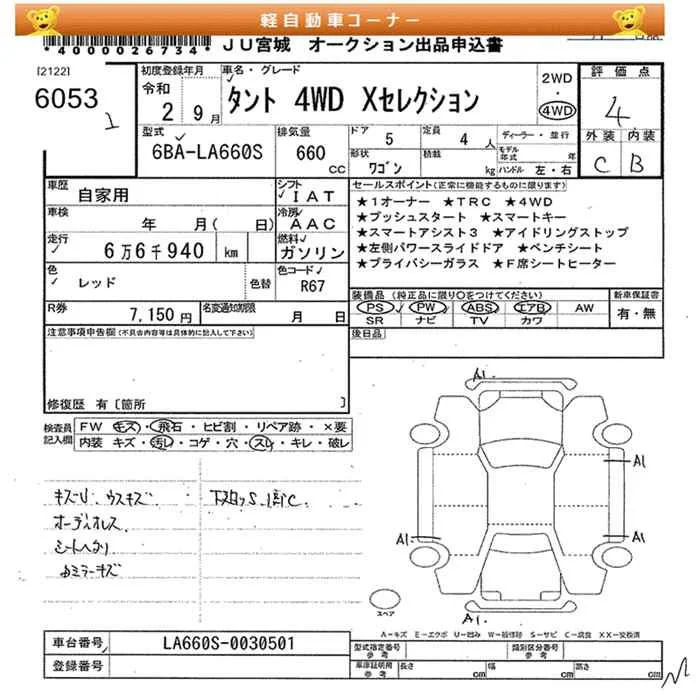 軽自動車コーナー
*4000026734* JU宮城 オークション出品申込書
[2122]
6053
1
初度登録年月
令和
2 9月
車名・グレード
タント 4WD Xセレクション
2WD
・
4WD
評価点
4
外装 内装
C B
型式
6BA-LA660S
排気量
660
cc
ドア
5
定員
4 人
形状
ワゴン
積載
kg
ディーラー・並行
モデル年式 年
ハンドル 左・右
車歴
自家用
シフト
IAT
車検
年 月( 日)
冷房
AAC
走行
6万6千940 km
燃料
ガソリン
色
レッド
色替
色コード
R67
R券
7,150円
名変通知期限
月 日
セールスポイント(正常に機能するものに限ります)
★1オーナー ★TRC ★4WD
★プッシュスタート ★スマートキー
★スマートアシスト3 ★アイドリングストップ
★左側パワースライドドア ★ベンチシート
★プライバシーガラス ★F席シートヒーター
装備品(純正品に限り○をつけてください)
PS PW ABS エアB AW
SR ナビ TV カワ
新車保証書
有・無
後日品
注意事項申告欄(不具合内容等は具体的に記入して下さい)
修復歴 有〔箇所 〕
検査員記入欄
FW キズ・飛石・ヒビ割・リペア跡・×要
内装 キズ・汚レ・コゲ・穴・スレ・キレ・破レ
キズU ウスキズ
オーディオレス
シートヘタリ
A1.
A1
A1
A1.
A1.
スペア
A-キズ E-エクボ U-凹み W-補修跡 S-サビ C-腐食 XX-交換済
車台番号
LA660S-0030501
登録番号
型式指定番号
参考
類別区分番号
参考
車庫証明用
参考
長さ cm 幅 cm 高さ cm